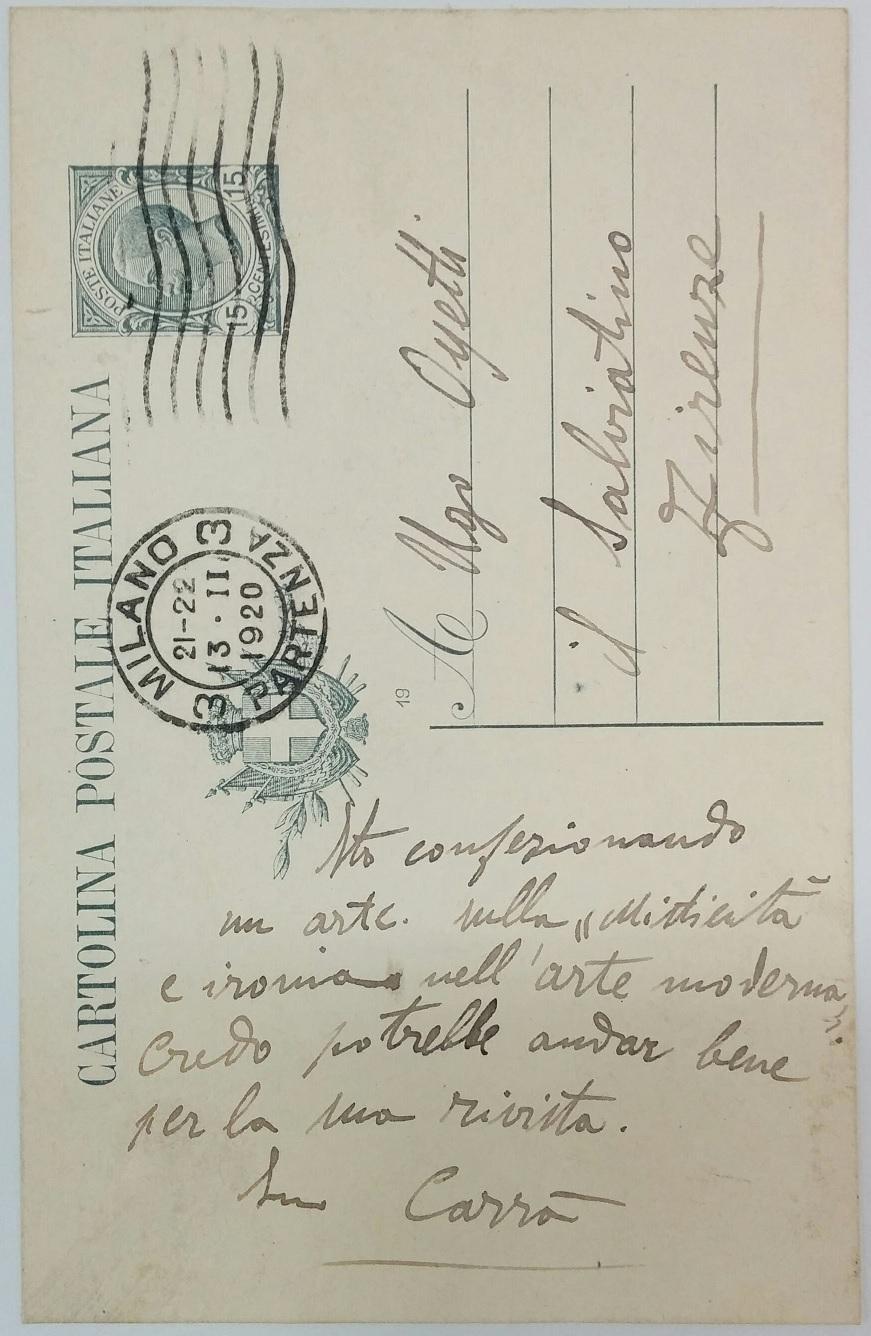 CARTOLINA POSTALE ITALIANA
POSTE ITALIANE
15 15
MILANO
3 3
21-22
13·II
1920
PARTENZA
19
A Ugo Ojetti
il Salviatino
Firenze
Sto confezionando
un artc. sulla „Mitticità
e ironia nell'arte moderna”.
Credo potrebbe andar bene
per la sua rivista.
Suo Carrà